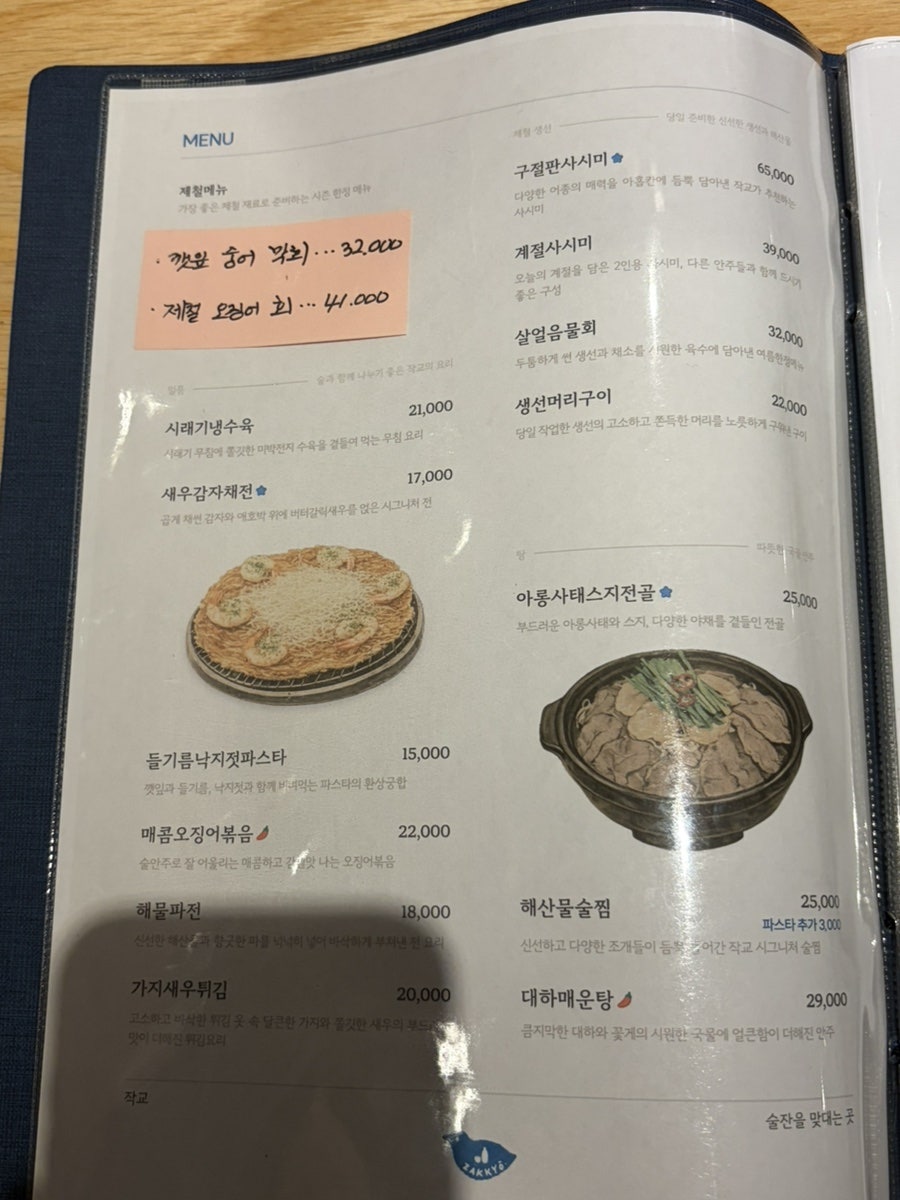 MENU
제철메뉴
가장 좋은 제철 재료로 준비하는 시즌 한정 메뉴
· 깻잎 숭어 막회 ... 32.000
· 제철 오징어 회 ... 41.000
일품 술과 함께 나누기 좋은 작교의 요리
시래기냉수육 21,000
시래기 무침에 쫄깃한 미박전지 수육을 곁들여 먹는 무침 요리
새우감자채전 17,000
곱게 채썬 감자와 애호박 위에 버터갈릭새우를 얹은 시그니처 전
들기름낙지젓파스타 15,000
깻잎과 들기름, 낙지젓과 함께 비벼먹는 파스타의 환상궁합
매콤오징어볶음 22,000
술안주로 잘 어울리는 매콤하고 맛 나는 오징어볶음
해물파전 18,000
신선한 해산물과 향긋한 파를 넉넉히 넣어 바삭하게 부쳐낸 전 요리
가지새우튀김 20,000
고소하고 바삭한 튀김 옷 속 달큰한 가지와 쫄깃한 새우의
맛이 더해진 튀김요리
제철 생선 당일 준비한 신선한 생선과 해산물
구절판사시미 65,000
다양한 어종의 매력을 아홉칸에 듬뿍 담아낸 작교가 추천하는
사시미
계절사시미 39,000
오늘의 계절을 담은 2인용 사시미, 다른 안주들과 함께 드시기
좋은 구성
살얼음물회 32,000
두툼하게 썬 생선과 채소를 시원한 육수에 담아낸 여름한정메뉴
생선머리구이 22,000
당일 작업한 생선의 고소하고 쫀득한 머리를 노릇하게 구워낸 구이
탕 따뜻한 국물안주
아롱사태스지전골 25,000
부드러운 아롱사태와 스지, 다양한 야채를 곁들인 전골
해산물술찜 25,000
파스타 추가 3,000
신선하고 다양한 조개들이 듬뿍 들어간 작교 시그니처 술찜
대하매운탕 29,000
큼지막한 대하와 꽃게의 시원한 국물에 얼큰함이 더해진 안주
작교
술잔을 맞대는 곳
ZAKKYO